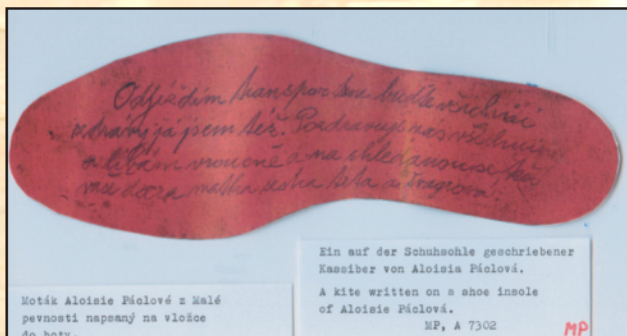 Odjíždím transportem buďte všichni
zdrávi já jsem též. Pozdravuji vás všechny
a líbám vroucně a na shledanou se těší
vaše dcera matka sestra teta a švagrová
Moták Aloisie Páclové z Malé
pevnosti napsaný na vložce
do boty.
Ein auf der Schuhsohle geschriebener
Kassiber von Aloisia Páclová.
A kite written on a shoe insole
of Aloisie Páclová.
MP, A 7302
MP